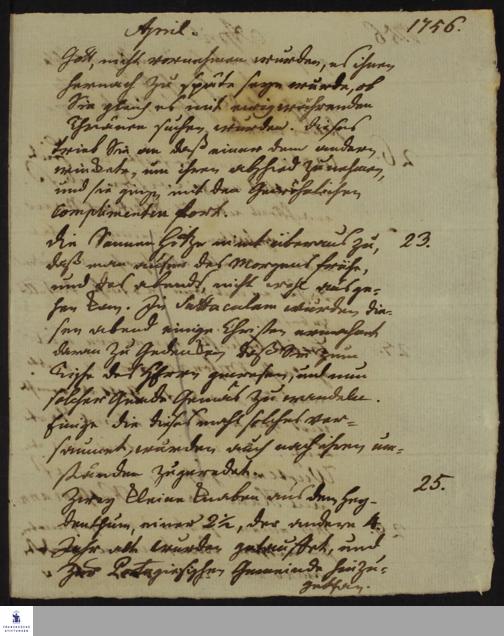 April. 1756.
Gott, nicht vornehmen würden, es ihnen
hernach zu späte seyn würde, ob
Sie gleich es mit immerwährenden
Thränen suchen würden. Dieses
trieb Sie an daß einer dem andern
winckete, um ihren abschied zu nehmen,
und sie giengen mit den Gewöhnlichen
Complimenten fort.
Die Sonnen Hitze nimt überaus zu, 23.
daß man außer des Morgens frühe,
und des abends, nicht wohl ausge-
hen kan. In Sattaculam wurden die-
sen abend einige Christen ermahnt
daran zu Gedencken daß Sie zum
Tische des Herrn gewesen, und nun
solcher Gnade Gemäs zu wandeln.
Einige die dieses mahl solches ver-
säumet, wurden auch nach ihren um-
ständen zugeredet.
Zwey kleine Knaben aus dem Hey- 25.
denthum, einer 2½, der andere 4
Jahr alt wurden getauffet, und
zur Portugiesischen Gemeinde hinzu-
gethan.
FRANCKESCHE
STIFTUNGEN